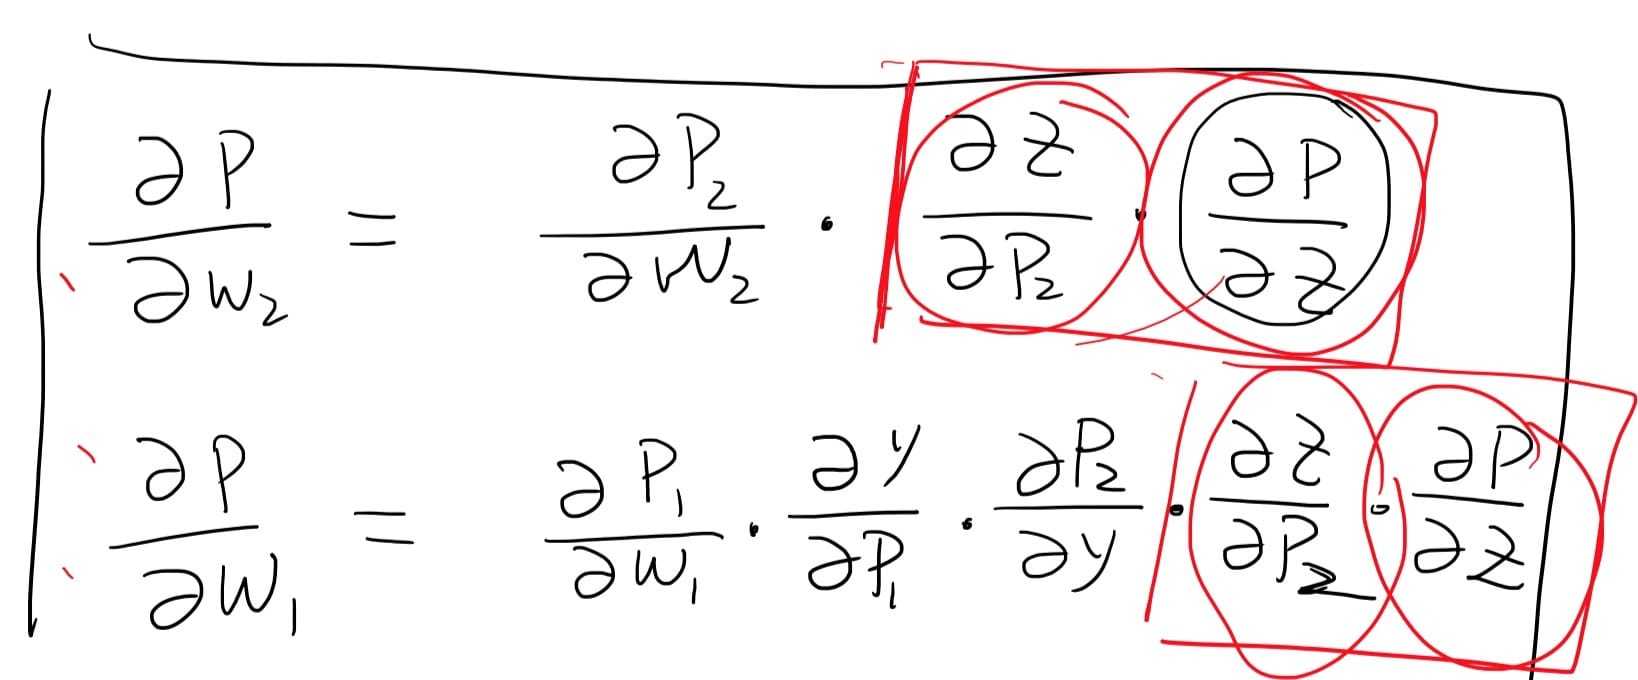 ∂P/∂W₂ = ∂P₂/∂W₂ · ∂Z/∂P₂ · ∂P/∂Z
∂P/∂W₁ = ∂P₁/∂W₁ · ∂y/∂P₁ · ∂P₂/∂y · ∂Z/∂P₂ · ∂P/∂Z